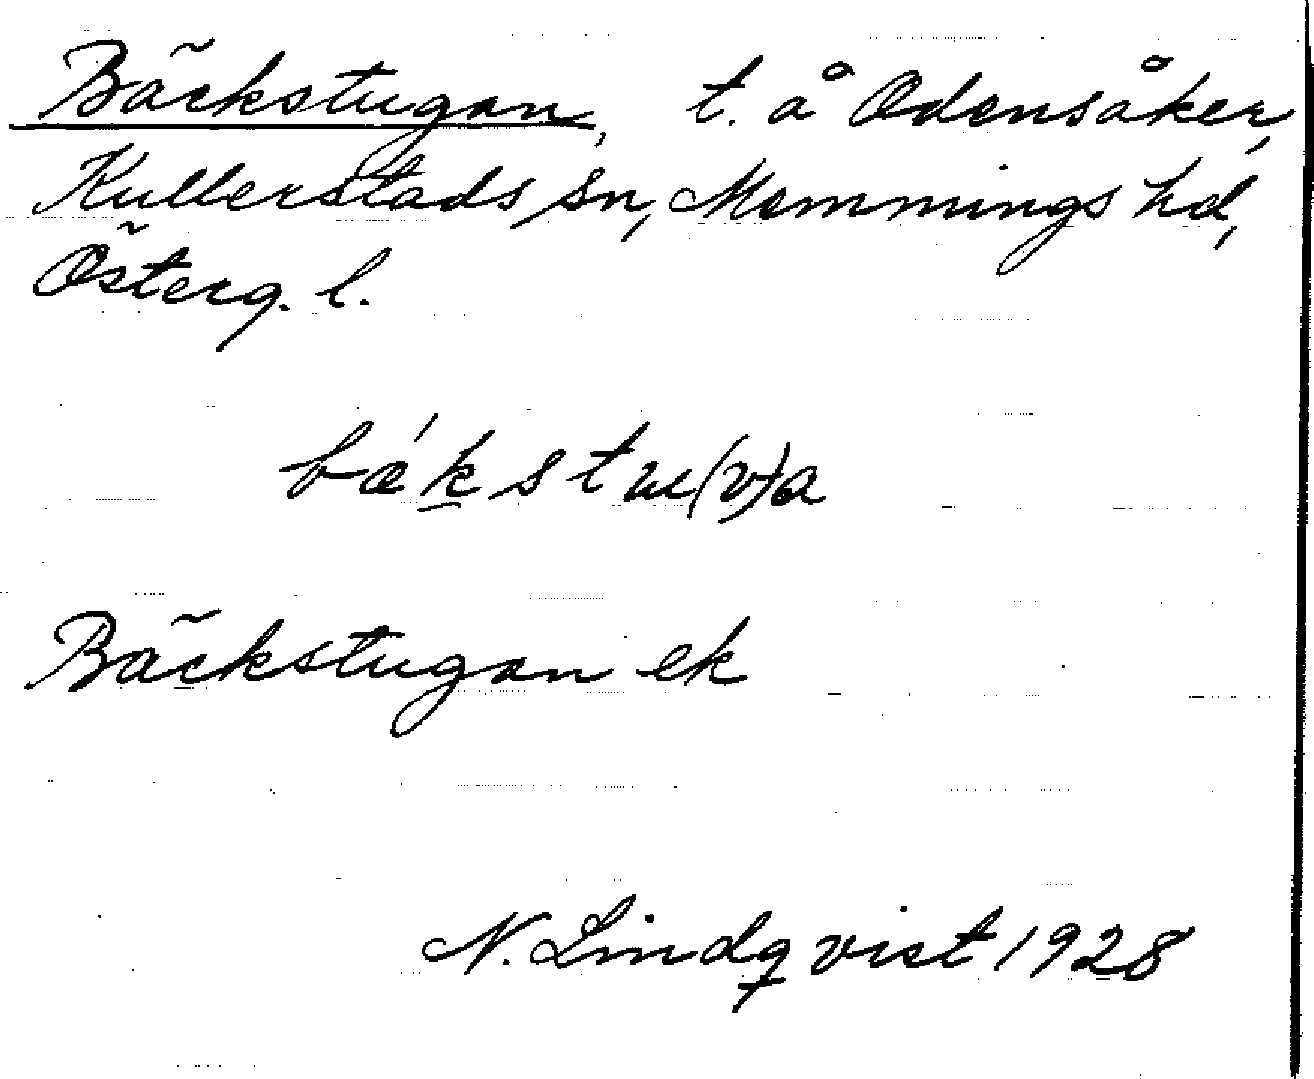 Bäckstugan, t. å Odensåker,
Kullerstads sn, Memmings hd,
Österg. l.
bǽkstu(v)a
Bäckstugan ek
N. Lindqvist 1928